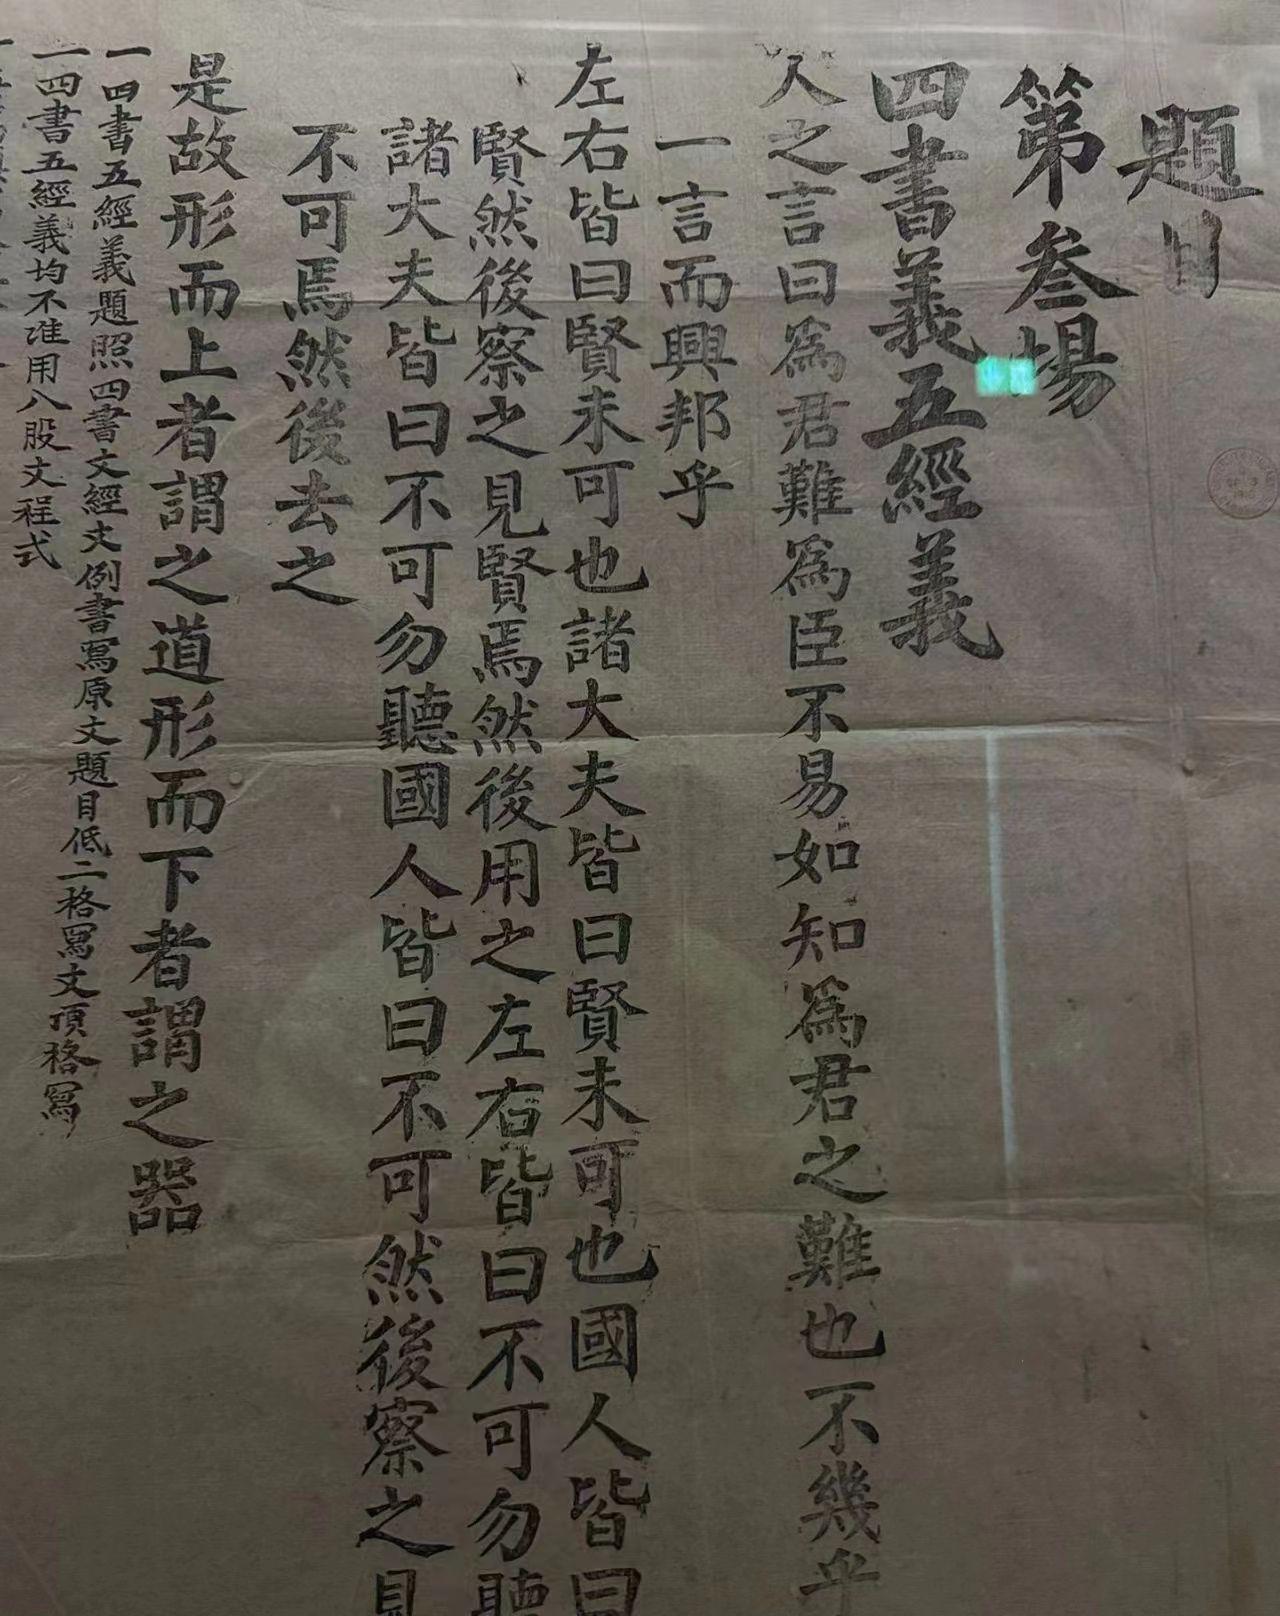 題目
第叁場
四書義五經義
人之言曰為君難為臣不易如知為君之難也不幾乎
一言而興邦乎
左右皆曰賢未可也諸大夫皆曰賢未可也國人皆曰
賢然後察之見賢焉然後用之左右皆曰不可勿聽
諸大夫皆曰不可勿聽國人皆曰不可然後察之見
不可焉然後去之
是故形而上者謂之道形而下者謂之器
一四書五經義題照四書文經文例書寫原文題目低二格寫文頂格寫
一四書五經義均不准用八股文程式